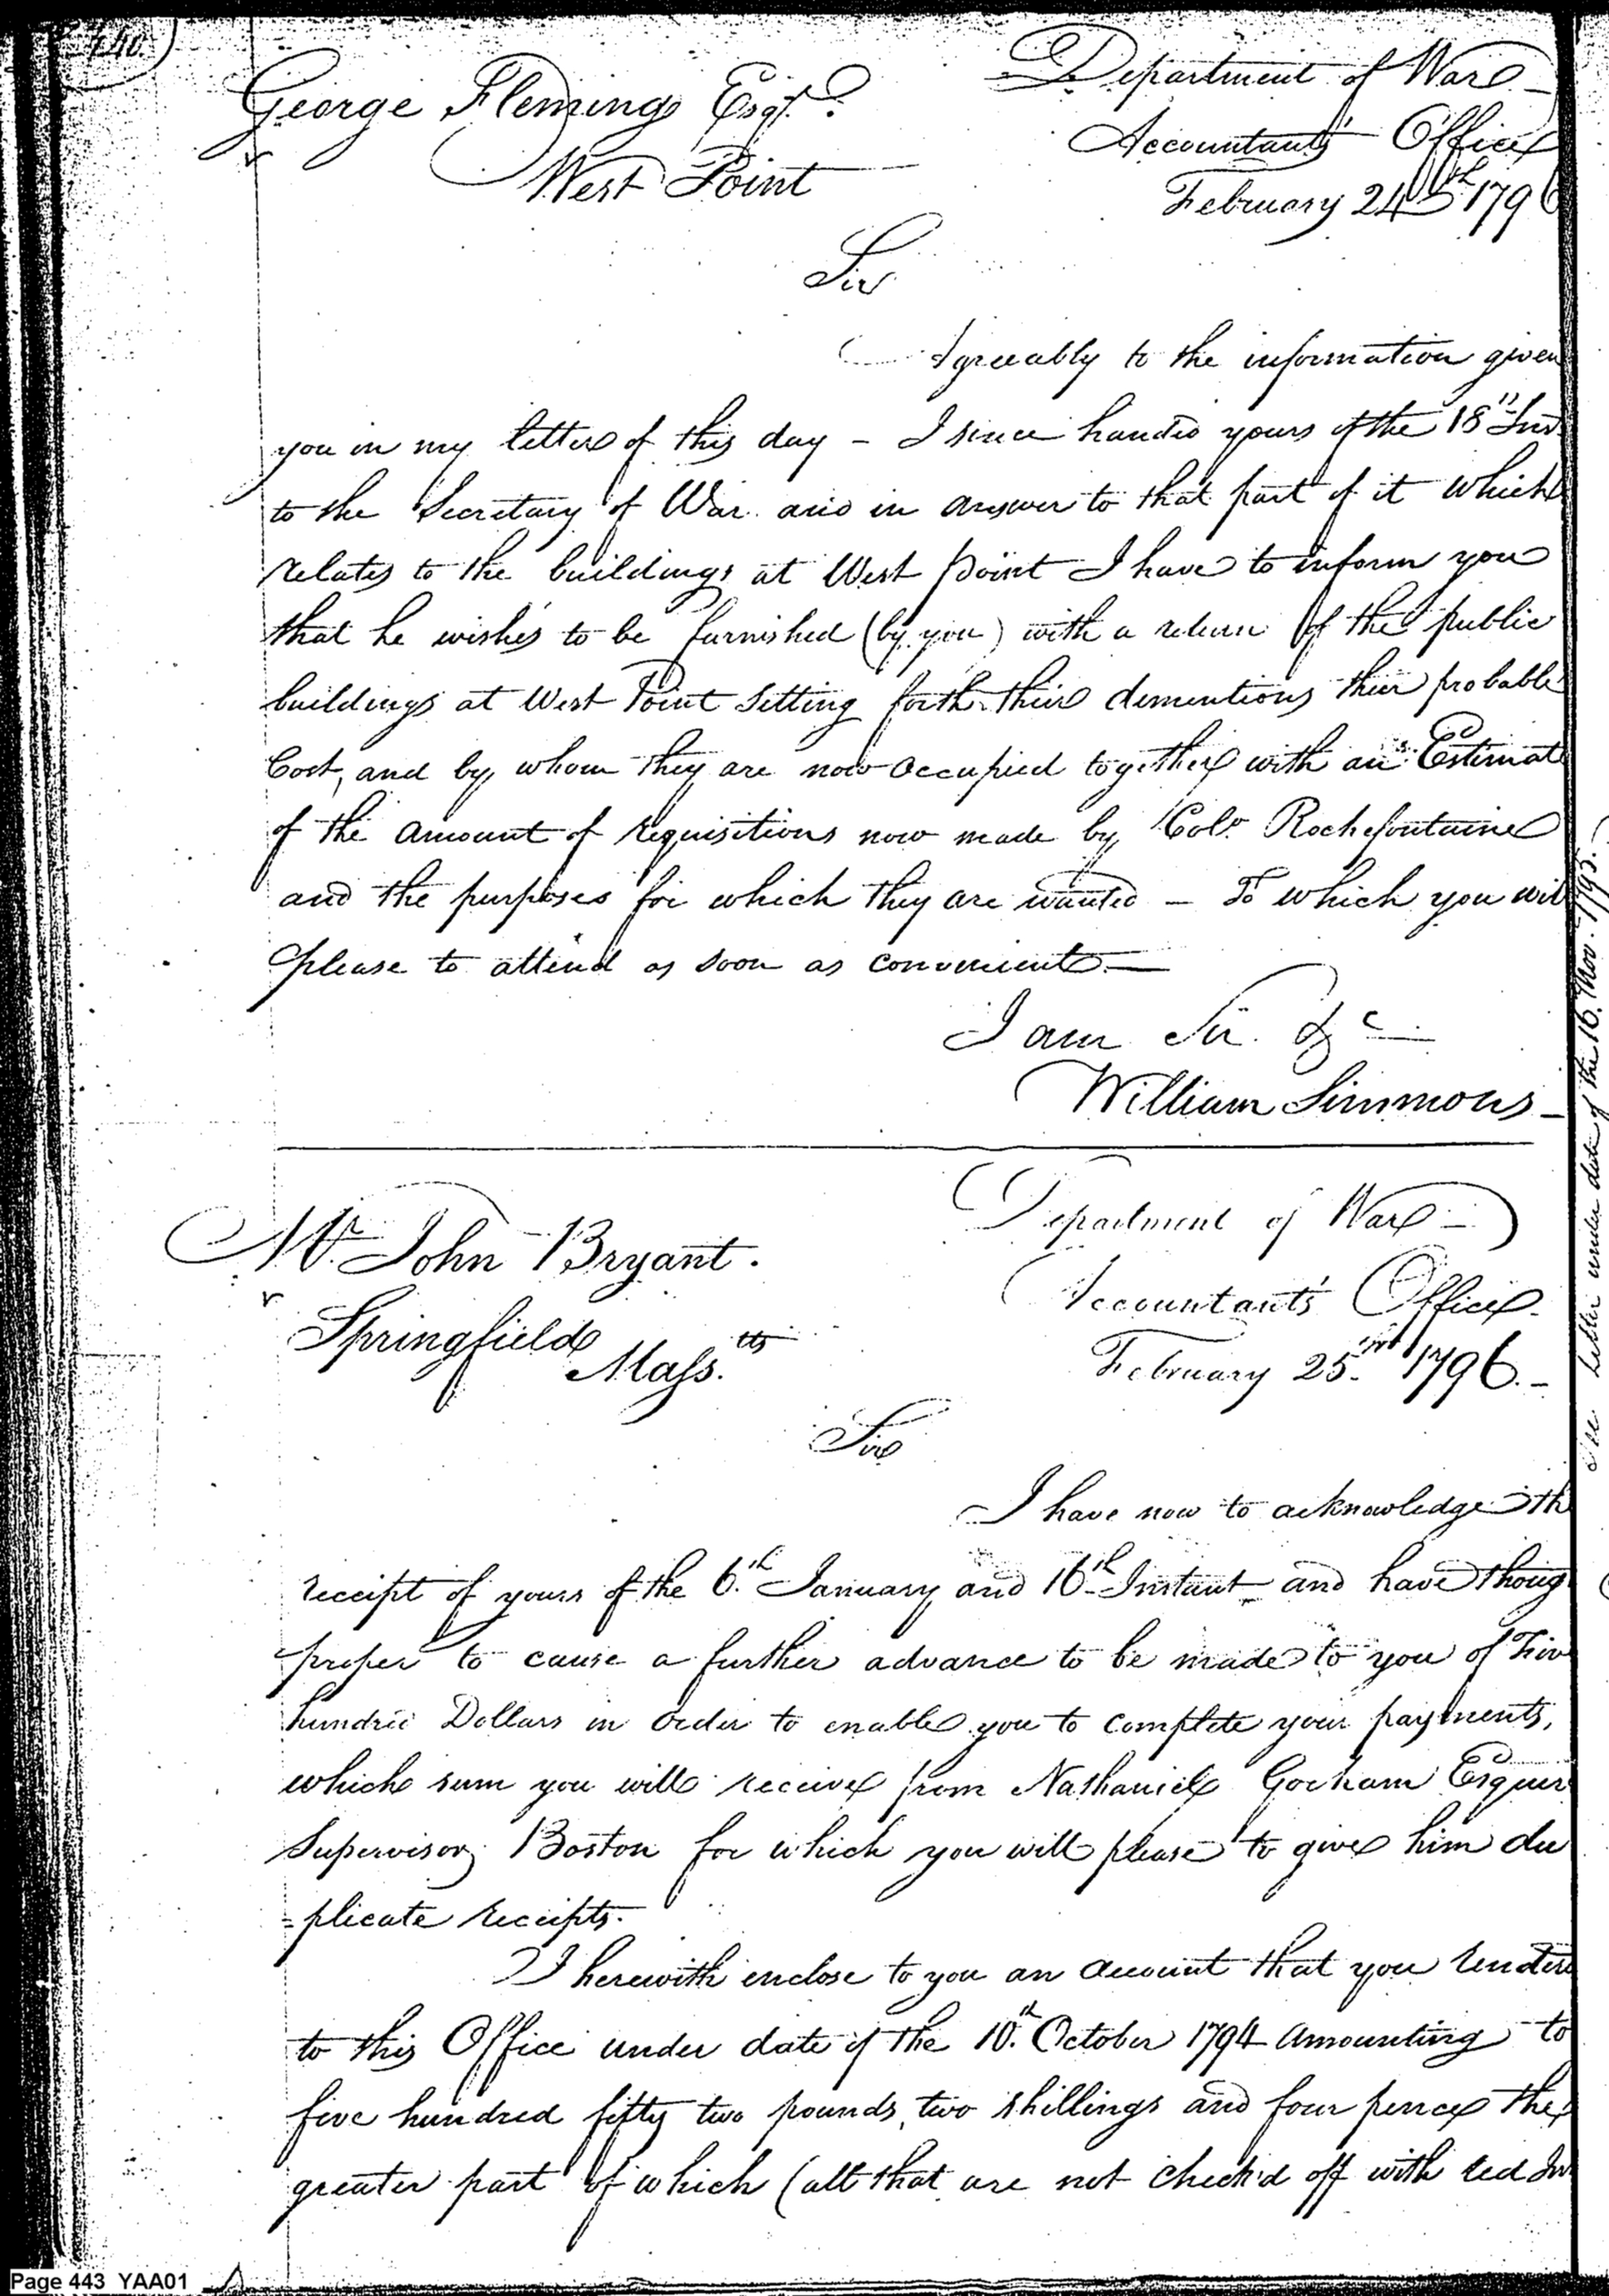 140.
George Fleming Esqr.
West Point
Department of War
Accountants Office
February 24th 1796
Sir
Agreeably to the information given
you in my letter of this day - I since handed yours of the 18th Inst
to the Secretary of War and in answer to that part of it which
relates to the buildings at West point I have to inform you
that he wishes to be furnished (by you) with a return of the public
buildings at West Point setting forth their dementions their probable
Cost, and by whom they are now occupied together with an Estimat
of the amount of requisitions now made by Colo. Rochefontaine
and the purposes for which they are wanted - To which you will
please to attend as soon as convenient.
I am Sir. &c
William Simmons
Mr. John Bryant.
Springfield
Mass.tts
Department of War
Accountant's Office
February 25. 1796.
Sir
I have now to acknowledge th
receipt of yours of the 6.th January and 16th Instant and have thoug
proper to cause a further advance to be made to you of Five
hundred Dollars in order to enable you to complete your payments,
which sum you will receive from Nathaniel Gorham Esquir
Supervisor, Boston for which you will please to give him du
=plicate receipts.
I herewith enclose to you an account that you render
to this Office under date of the 10.th October 1794 amounting to
five hundred fifty two pounds, two shillings and four pence the
greater part of which (all that are not check'd off with red In
letter under date of the 16. Nov. 1795.
Page 443 YAA01